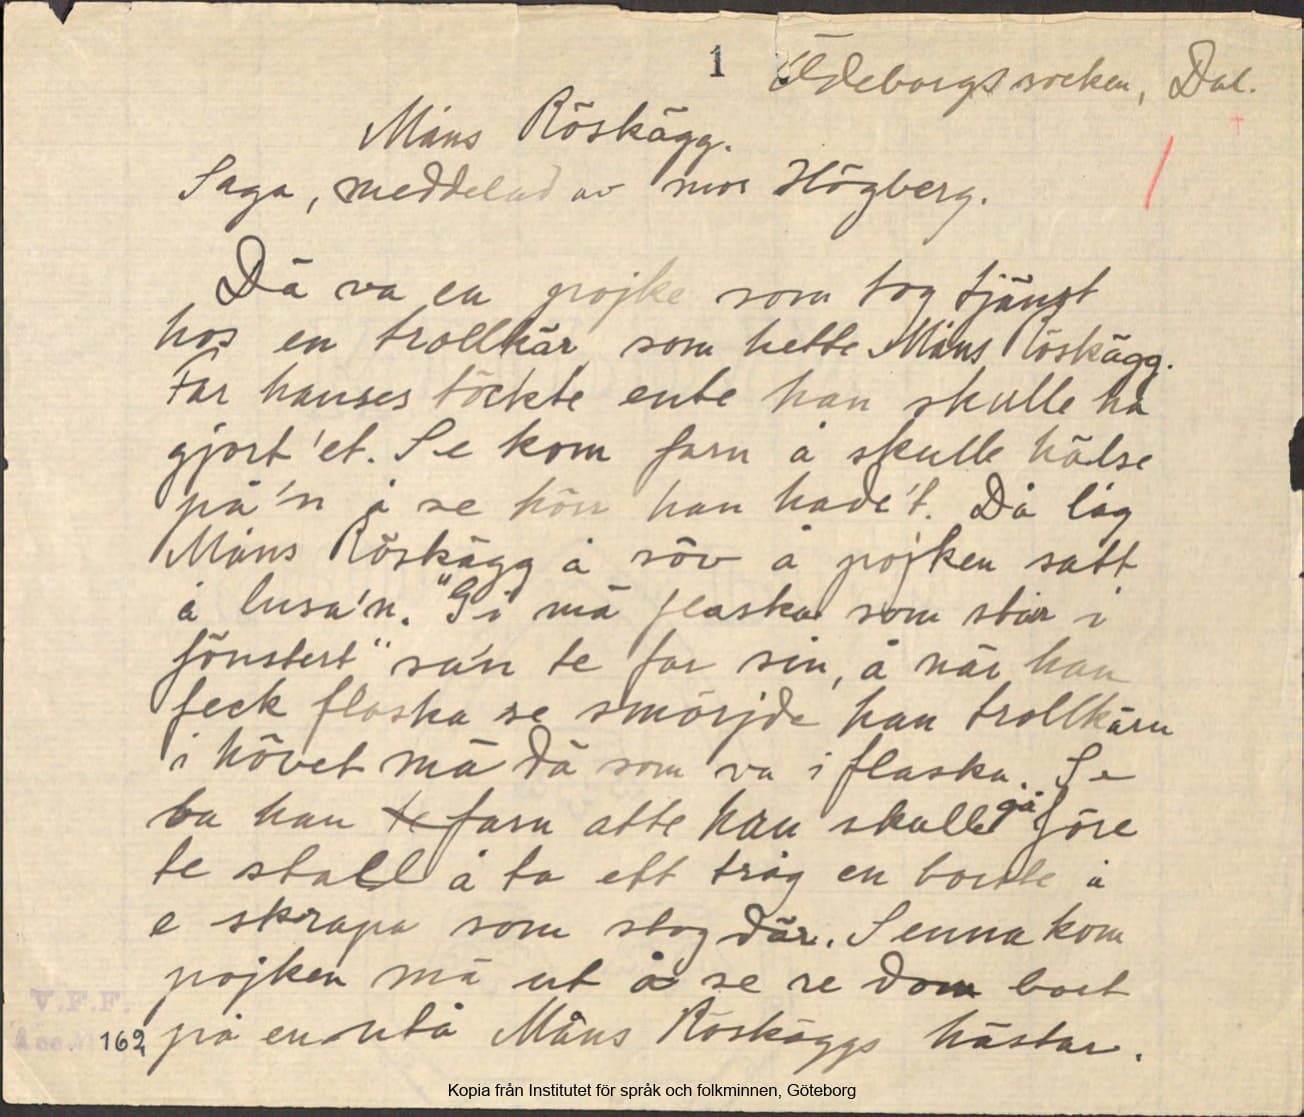 1 Ödeborgs socken, Dal.
Måns Röskägg.
Saga, meddelad av mor Högberg.
Dä va en pojke som tog tjänst
hos en trollkär som hette Måns Röskägg.
Far hanses töckte ente han skulle ha
gjort 'et. Se kom farn å skulle hälse
på 'n å se hörr han hade 't. Då låg
Måns Röskägg å söv å pojken satt
å lusa'n. "Gi mä flaska som står i
fönstert" sa'n te far sin, å när han
feck flaska se smörjde han trollkärn
i hövet mä dä som va i flaska. Se
ba han farn atte han skulle gå före
te stall å ta ett tråg en borste å
e skrapa som stog där. Senna kom
pojken mä ut å se re dom bort
på en utå Måns Röskäggs hästar.
V.F.F.
Acc. 162
Kopia från Institutet för språk och folkminnen, Göteborg